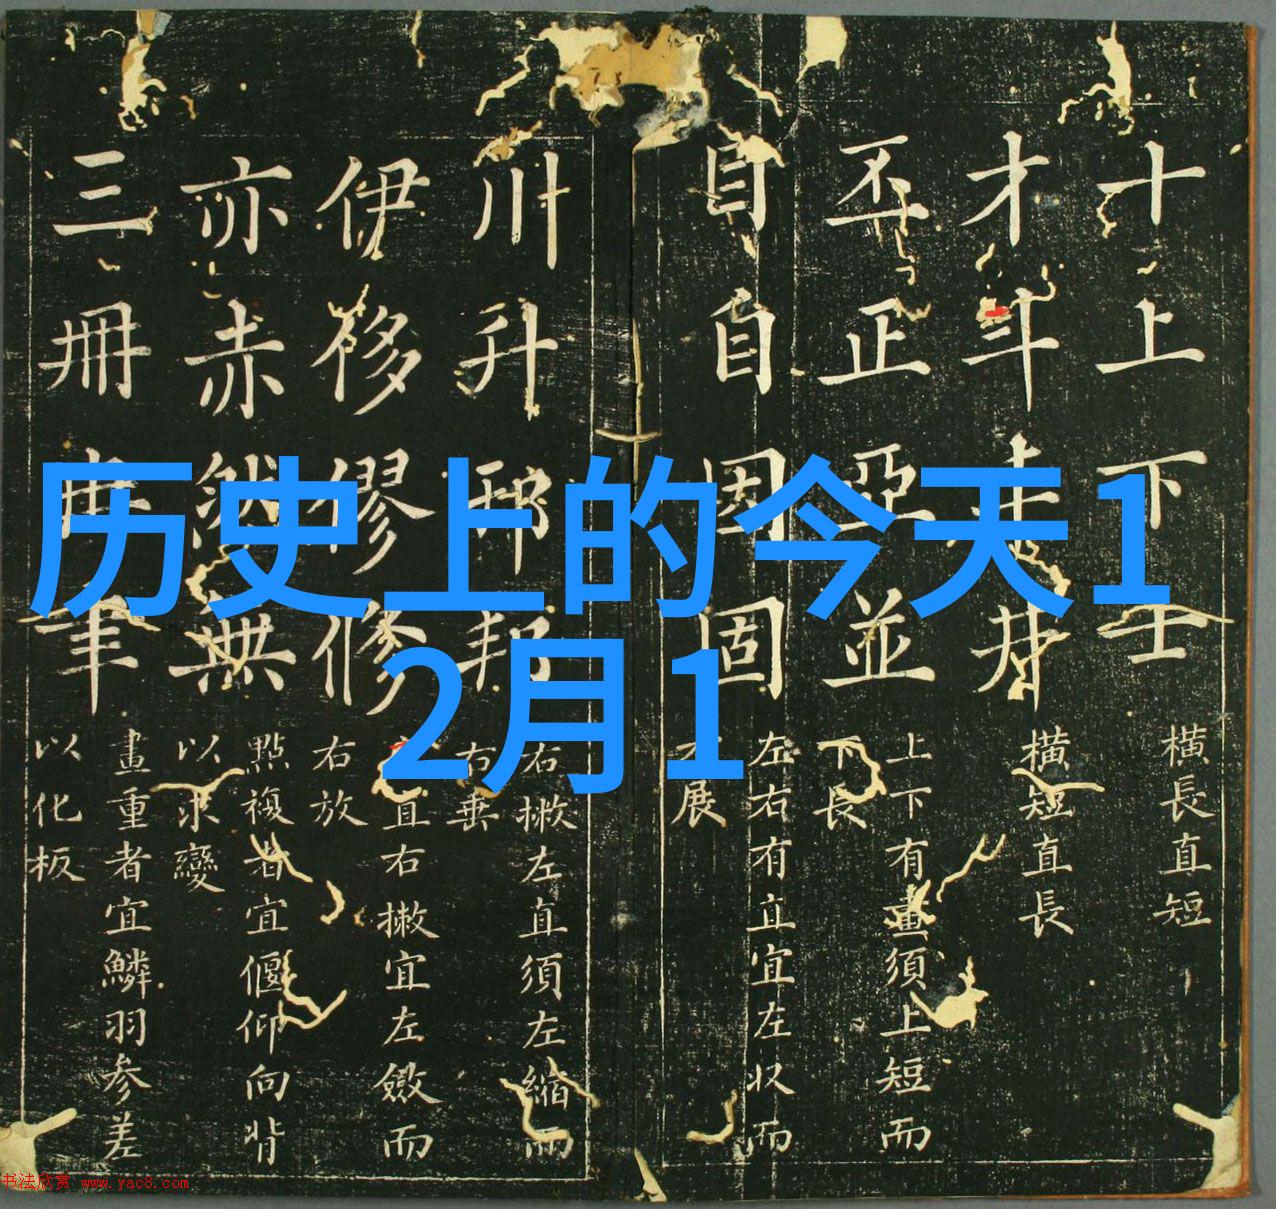 历史上的今天1
2月1
十上下士
橫長直短
才斗井
橫短直長
丕正亞並
上下有畫須上短而
下長
目自因固
左右有直宜左收而
右展
川升邦
右撇左直須左縮而
右垂
伊侈僇修
直右撇宜左斂而
右放
亦赤然無
點複者宜偃仰向背
以求變
三冊聿
畫重者宜鱗羽参差
以化板
书法欣赏 www.yac8.com